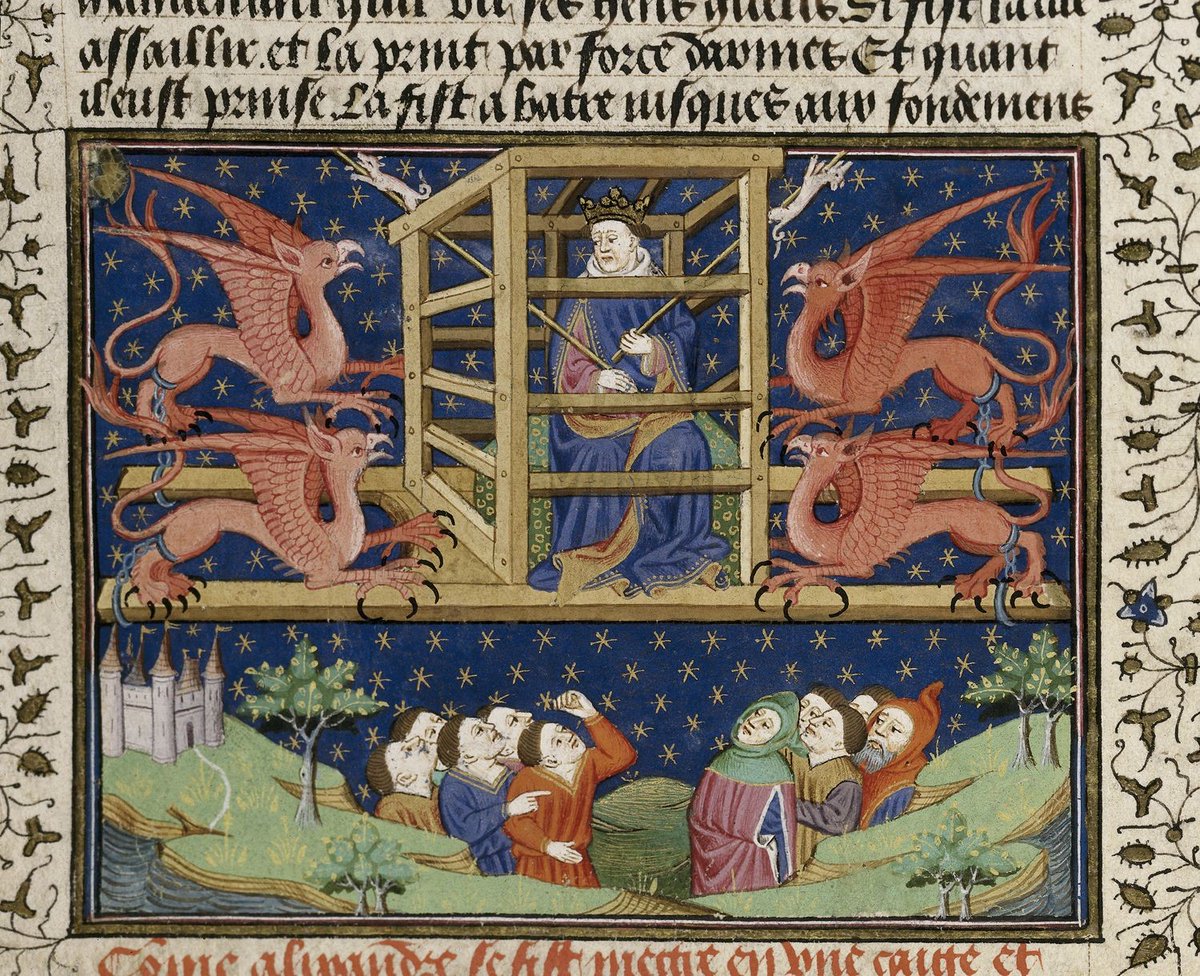 assaillir. et la print par force darmes Et quant
il eust prinse. La fist abatre iusques aux fondemens
Come alixandre se fist mettre en une caige et